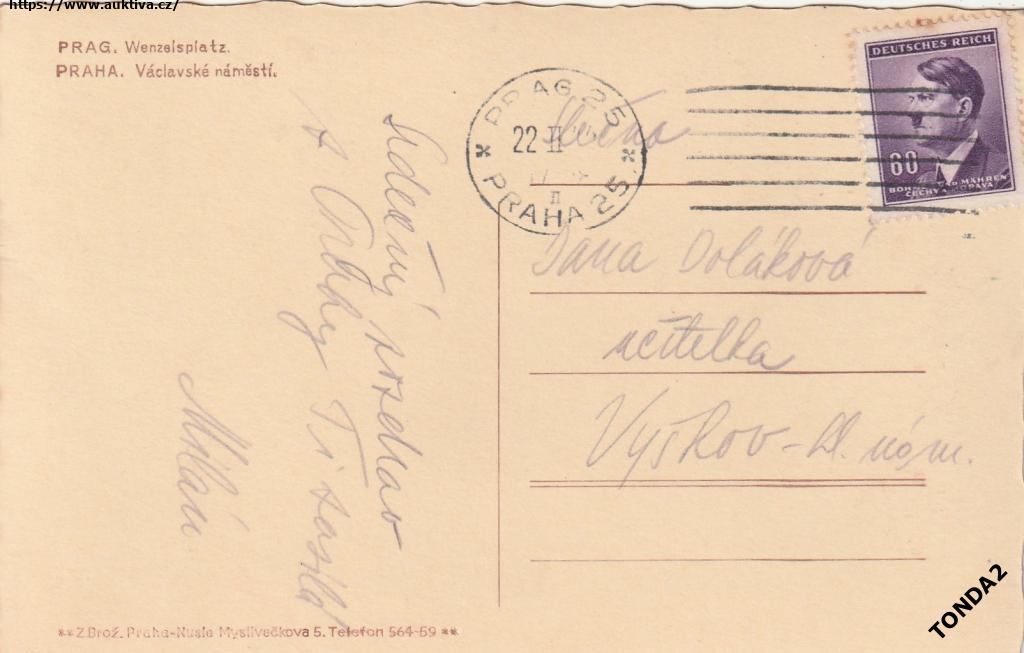 https://www.auktiva.cz/
PRAG. Wenzelsplatz.
PRAHA. Václavské náměstí.
DEUTSCHES REICH
60
BÖHMEN UND MÄHREN
ČECHY A MORAVA
PRAG 25
22 II
II
PRAHA 25
Slečna
Dana Doláková
učitelka
Vyškov - Hl. nám.
Srdečný pozdrav
z Prahy Ti zasílá
Milan
**Z.Brož. Praha-Nusle Myslivečkova 5. Telefon 564-59 **
TONDA2